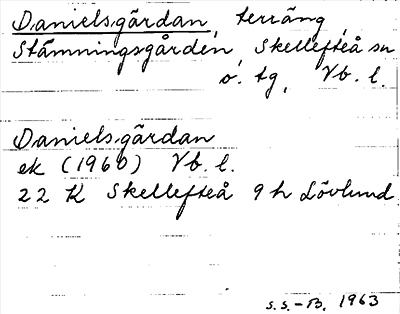 Danielsgärdan, terräng,
Stämningsgården, Skellefteå sn
o. tg, Vb. l.
Danielsgärdan
ek (1960) Vb. l.
22 K Skellefteå 9 h Lövlund
S.S.-B. 1963